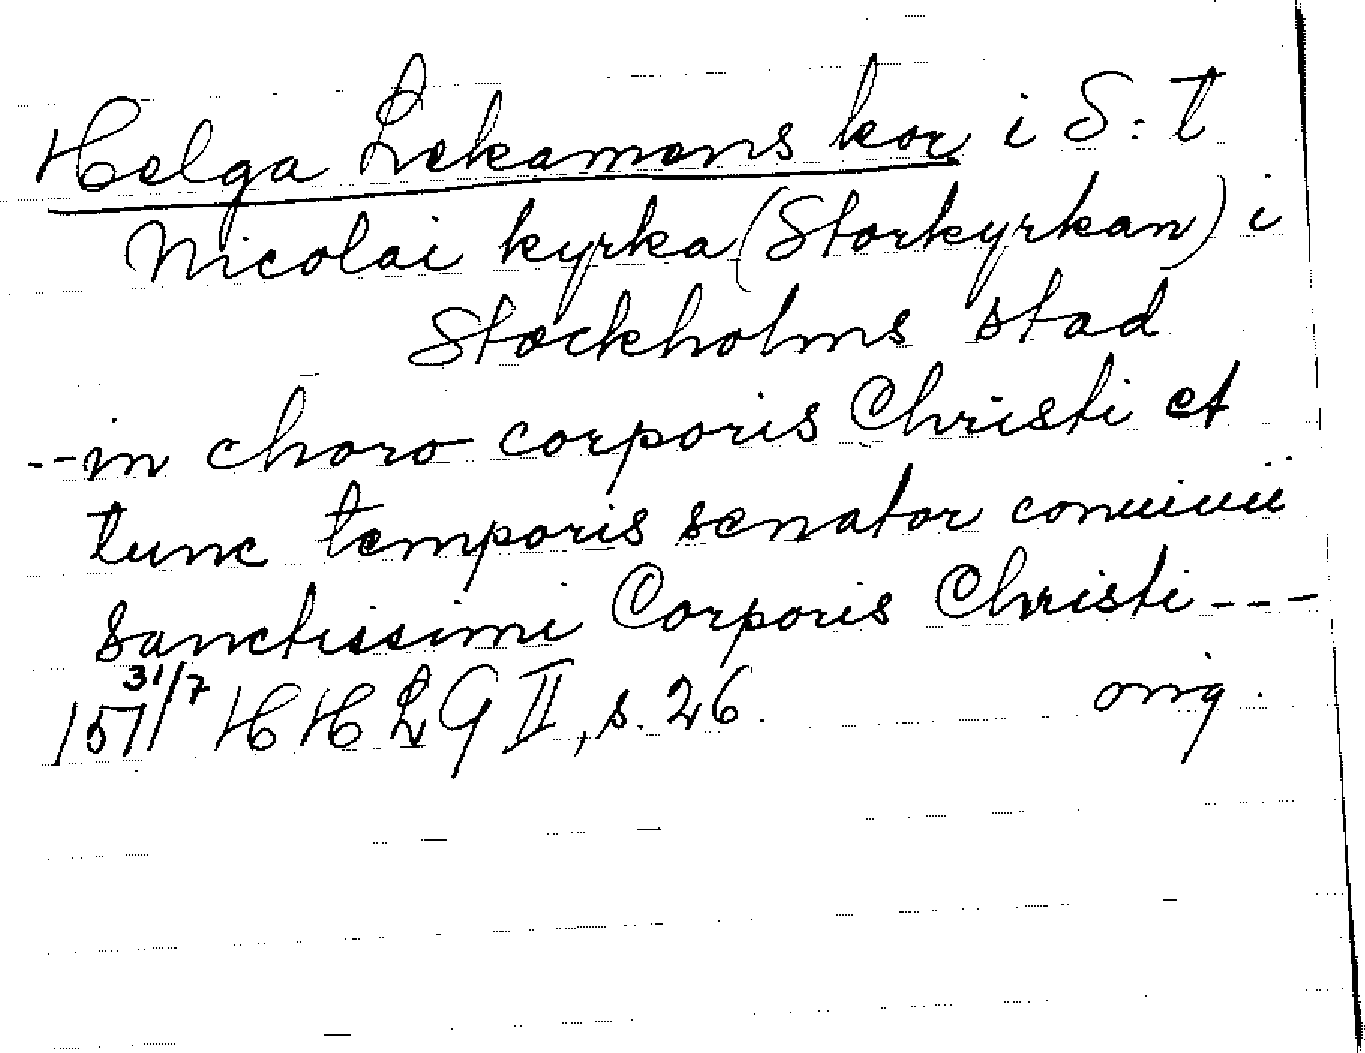 Helga Lekamens kor i S:t
Nicolai kyrka (Storkyrkan) i
Stockholms stad
--in choro corporis Christi et
tunc temporis senator conuiuii
sanctissimi Corporis Christi---
1571 31/7 HHLG II, s. 26. orig.